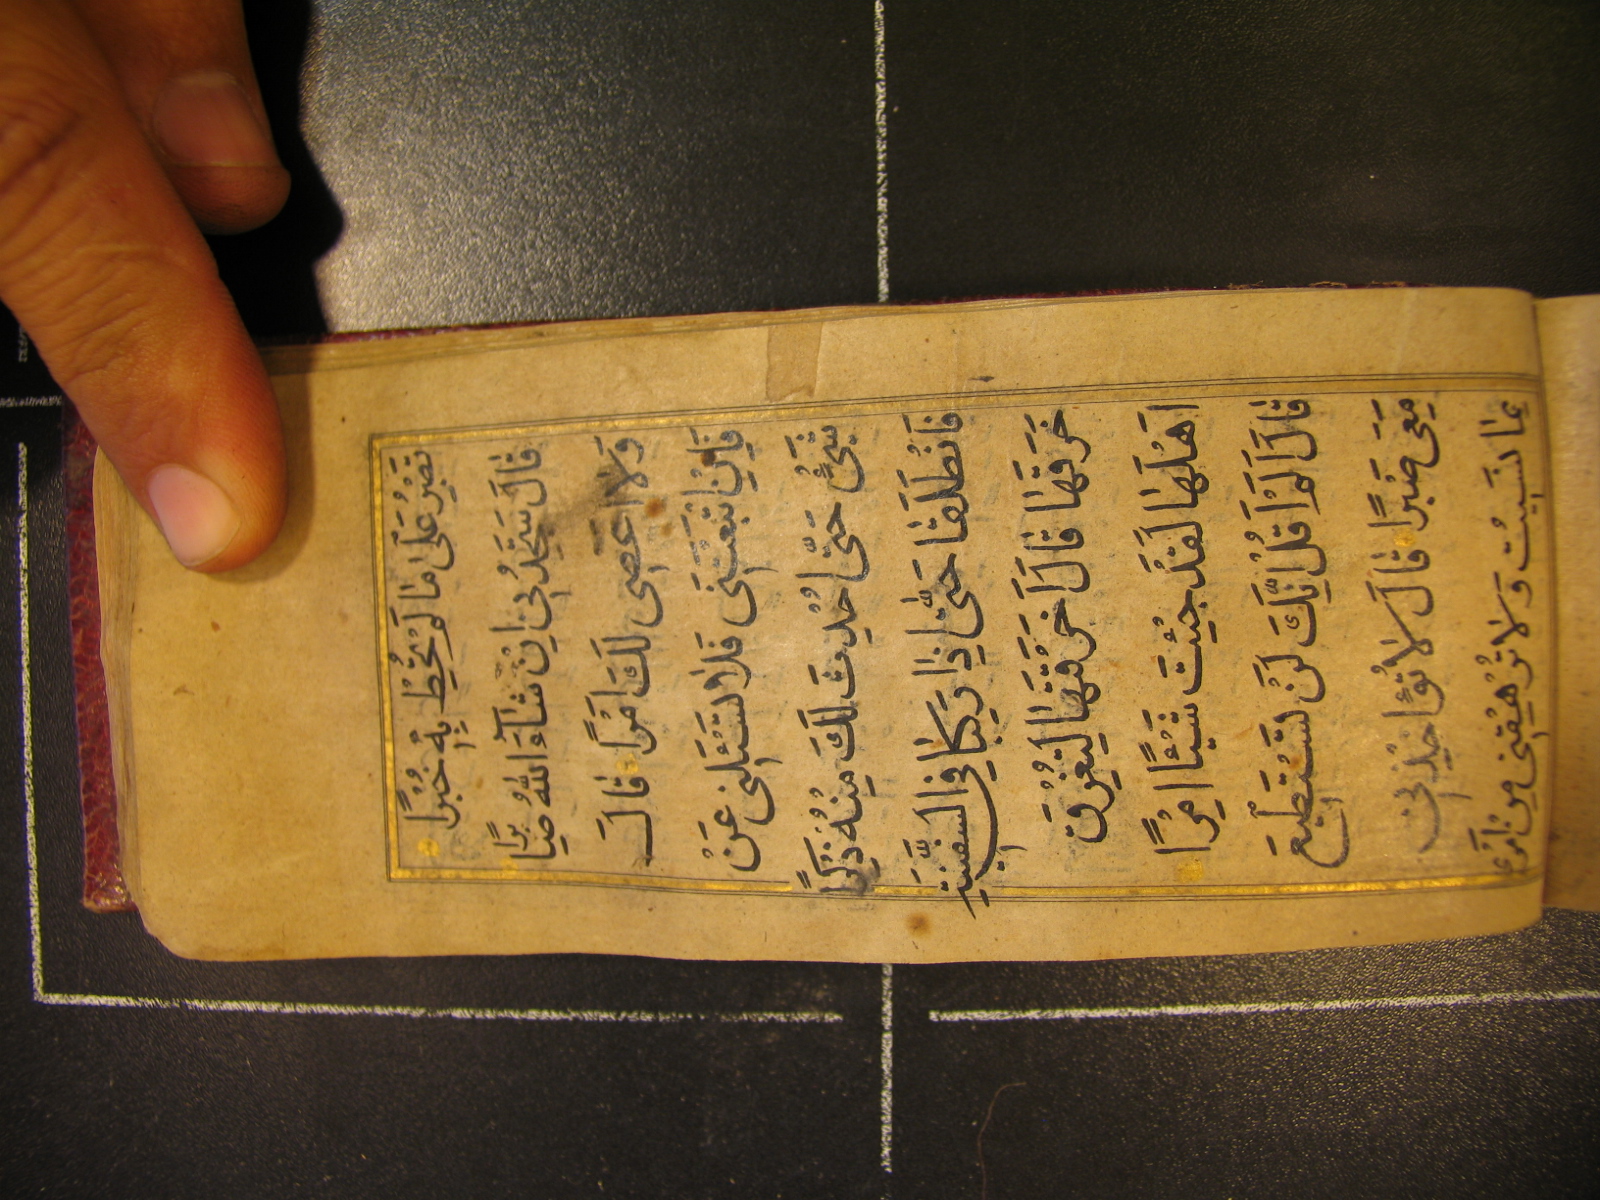 تَصْبِرُ عَلٰى مَا لَمْ تُحِطْ بِهٖ خُبْرًا
قَالَ سَتَجِدُنِي اِنْ شَآءَ اللّٰهُ صَابِرًا
وَلَا اَعْصِى لَكَ اَمْرًا قَالَ
فَاِنِ اتَّبَعْتَنِى فَلَا تَسْئَلْنِى عَنْ
شَىْءٍ حَتّٰى اُحْدِثَ لَكَ مِنْهُ ذِكْرًا
فَانْطَلَقَا حَتّٰى اِذَا رَكِبَا فِي السَّفِينَةِ
خَرَقَهَا قَالَ اَخَرَقْتَهَا لِتُغْرِقَ
اَهْلَهَا لَقَدْ جِئْتَ شَيْئًا اِمْرًا
قَالَ اَلَمْ اَقُلْ اِنَّكَ لَنْ تَسْتَطِيعَ
مَعِىَ صَبْرًا قَالَ لَا تُؤَاخِذْنِى
بِمَا نَسِيتُ وَلَا تُرْهِقْنِى مِنْ اَمْرِى